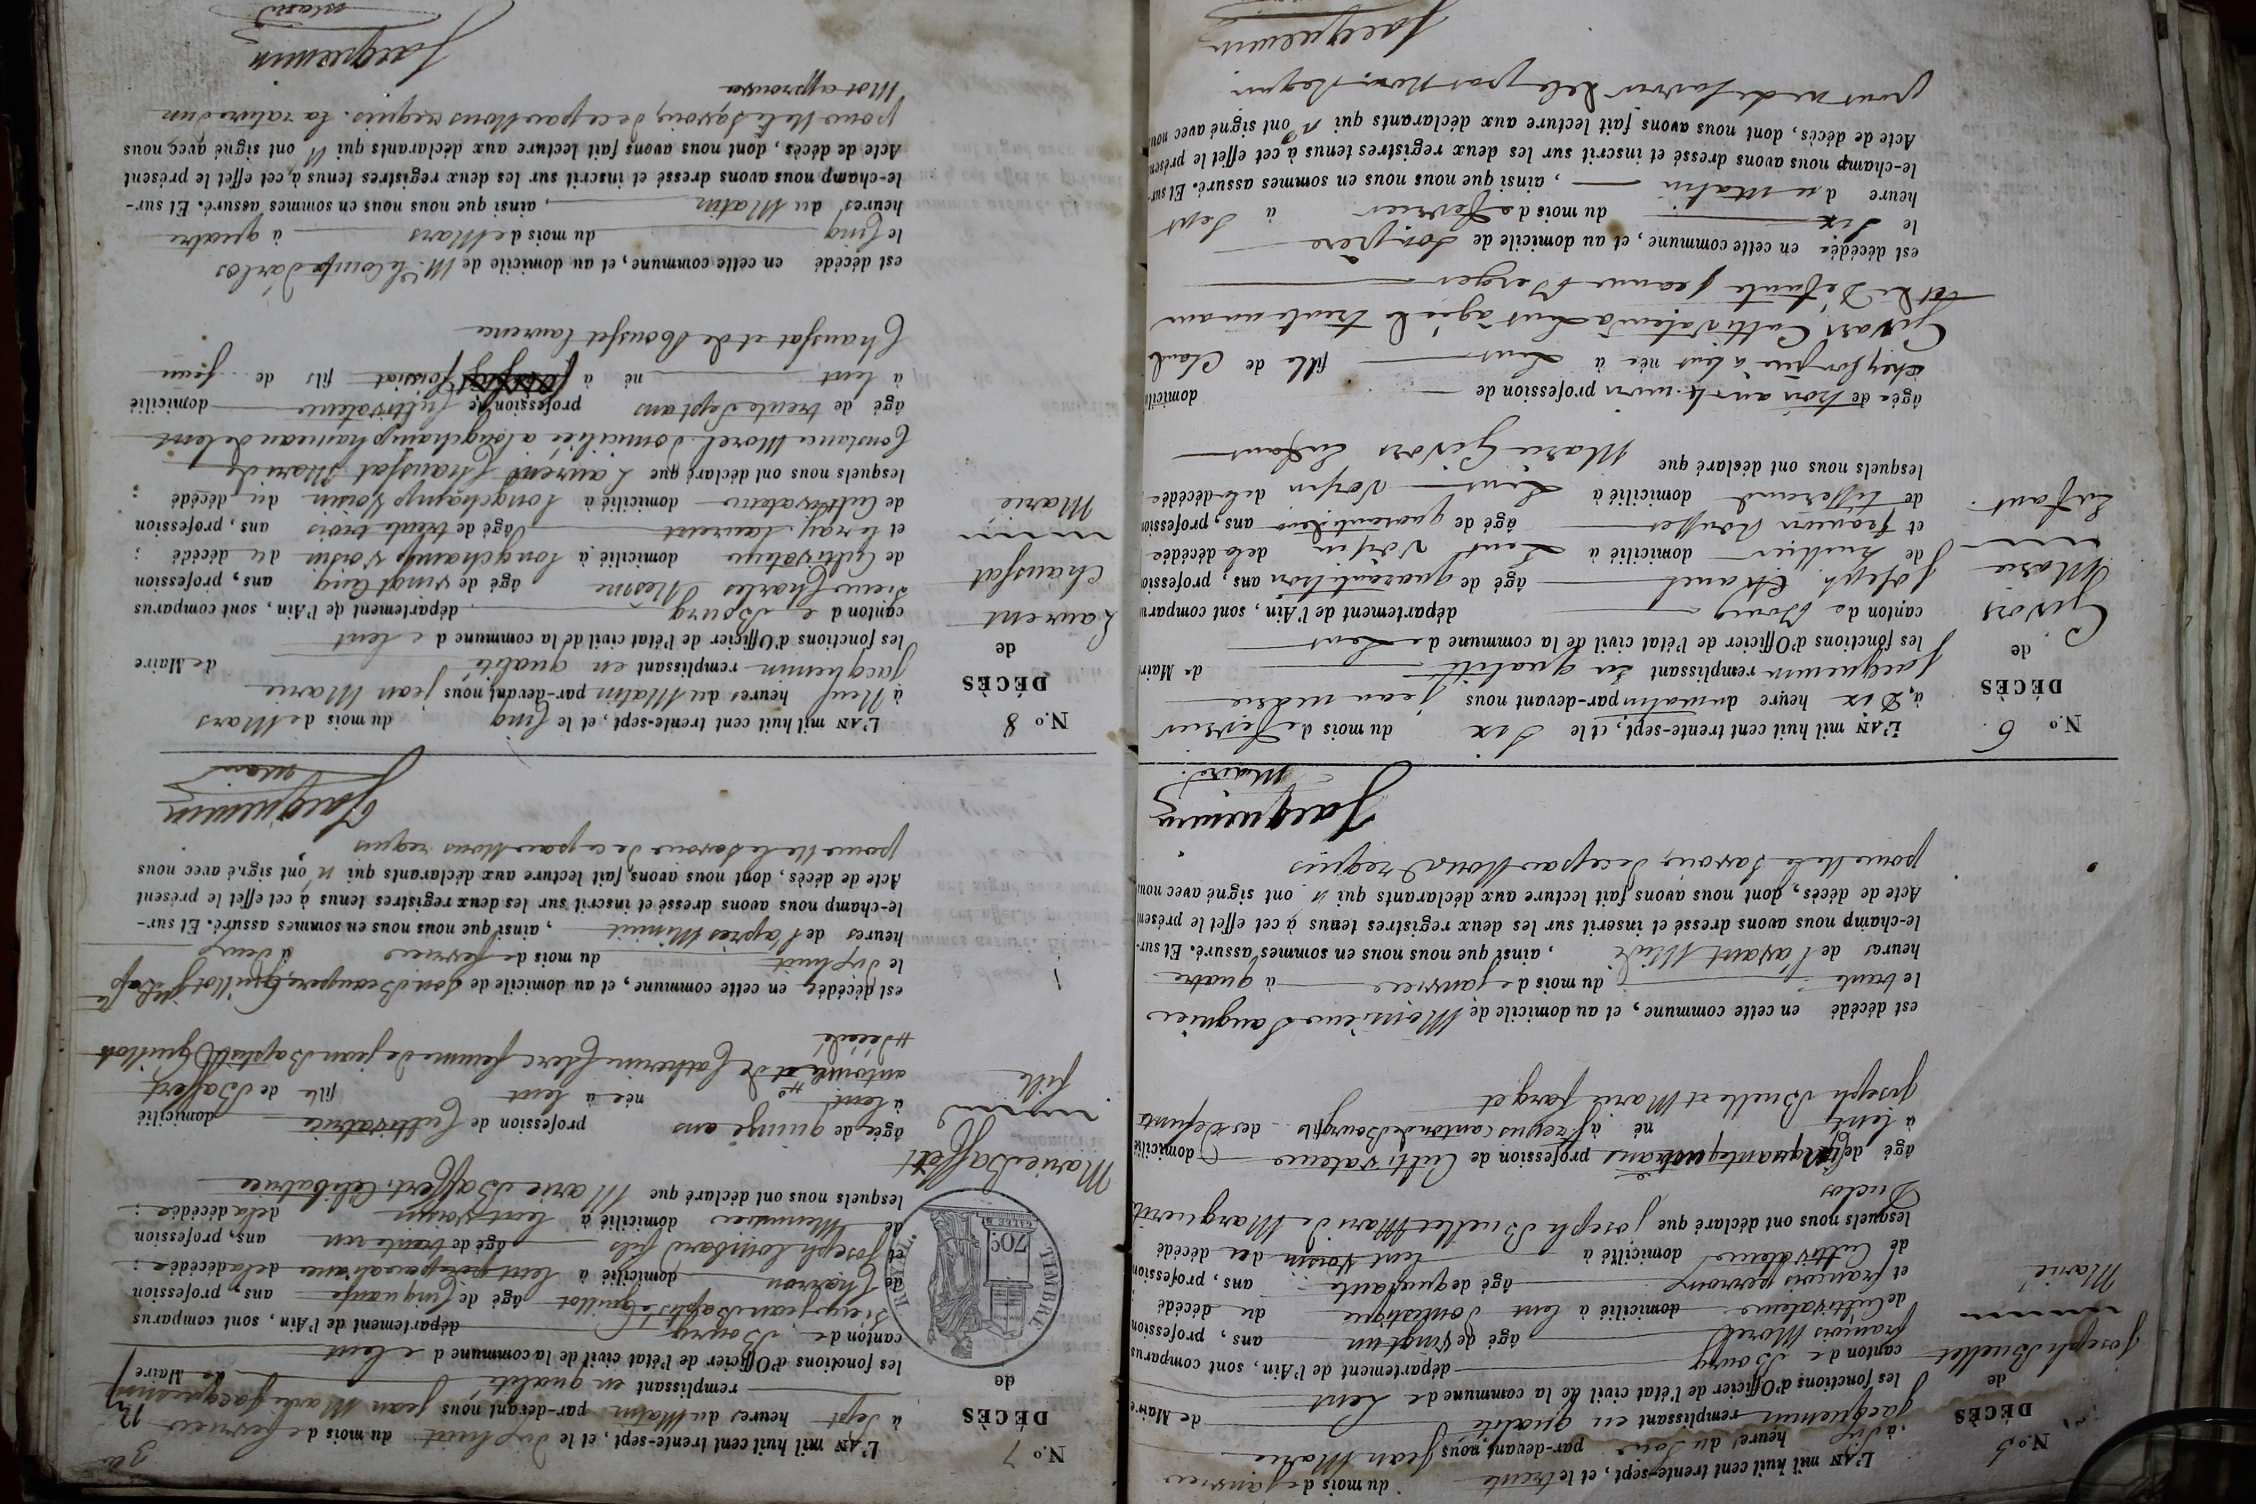 N.o 5
DÉCÈS
de
Joseph Buellet
Marié
L'AN mil huit cent trente-sept, et le trente du mois de janvier
à dix heures du soir par-devant nous jean Marie
jacquemin remplissant en qualité de Maire
les fonctions d'Officier de l'état civil de la commune de Lent
canton de Bourg département de l'Ain, sont comparus
françois Morel âgé de vingt un ans, profession
de Cultivateur domicilié à lent Domestique du décédé
et françois perroux âgé de quarante ans, profession
de Cultivateur domicilié à lent voisin du décédé
lesquels nous ont déclaré que joseph Buellet Mari de Marguerite
Duclos
âgé de profession de Cultivateur domicilié
à lent né à canton de Bourg fils des défunts
joseph Buellet et Marie farget
est décédé en cette commune, et au domicile de Monsieur Sauguier
le trente du mois de janvier à quatre
heures de l'avant Midi, ainsi que nous nous en sommes assuré. Et sur-
le-champ nous avons dressé et inscrit sur les deux registres tenus à cet effet le présent
Acte de décès, dont nous avons fait lecture aux déclarants qui n' ont signé avec nous
pour ne le savoir, de ce par Nous requis
Jacquemin
Maire
N.o 6
DÉCÈS
de
Givors
Marie
Enfant.
L'AN mil huit cent trente-sept, et le Six du mois de fevrier
à Dix heure du matin par-devant nous jean marie
jacquemin remplissant en qualité de Maire
les fonctions d'Officier de l'état civil de la commune de Lent
canton de Bourg département de l'Ain, sont comparus
joseph Chanel âgé de quarante trois ans, profession
de huilier domicilié à Lent Voisin de la décédée
et francois Rousset âgé de quarante deux ans, profession
de tisserand domicilié à Lent Voisin de la décédée
lesquels nous ont déclaré que Marie Givors Enfant
âgée de trois ans profession de domiciliée
chez son père à lent née à Lent fille de Claude
Givors Cultivateur à Lent agé de trente un ans
et de Defunte jeanne Berger
est décédée en cette commune, et au domicile de Son père
le Six du mois de fevrier à Sept
heure du Matin, ainsi que nous nous en sommes assuré. Et sur-
le-champ nous avons dressé et inscrit sur les deux registres tenus à cet effet le présent
Acte de décès, dont nous avons fait lecture aux déclarants qui n' ont signé avec nous
pour ne le savoir de ce par Nous Requis
Jacquemin
N.o 7
DÉCÈS
de
TIMBRE ROYAL
70c
Marie Baffert
fille
L'AN mil huit cent trente-sept, et le dix huit du mois de fevrier
à Sept heures du Matin par-devant nous jean Marie Jacquemin
remplissant en qualité de Maire
les fonctions d'Officier de l'état civil de la commune de lent
canton de Bourg département de l'Ain, sont comparus
Sieurs jean Baptiste Guillot âgé de Cinquante ans, profession
de Charron domicilié à lent de la décédée ;
et joseph Lombard fils âgé de trente un ans, profession
de Menuisier domicilié à lent voisin de la décédée ;
lesquels nous ont déclaré que Marie Baffert, Célibatrice
âgée de quinze ans profession de Cultivatrice domicilié
à lent née à lent fille de Baffert
antoine et de Catherine Clerc femme de jean Baptiste Guillot
décédé
est décédée en cette commune, et au domicile de son Beaupere, Guillot jn Bapste
le dix huit du mois de fevrier à deux
heures de l'après Minuit, ainsi que nous nous en sommes assuré. Et sur-
le-champ nous avons dressé et inscrit sur les deux registres tenus à cet effet le présent
Acte de décès, dont nous avons fait lecture aux déclarants qui n' ont signé avec nous
pour ne le savoir de ce par Nous requis
Jacquemin
Maire
N.o 8
DÉCÈS
de
Laurent
Chansfat
Marié
L'AN mil huit cent trente-sept, et le Cinq du mois de Mars
à Neuf heures du Matin par-devant nous jean Marie
jacquemin remplissant en qualité de Maire
les fonctions d'Officier de l'état civil de la commune de lent
canton de Bourg département de l'Ain, sont comparus
Sieurs Charles Mesme âgé de vingt cinq ans, profession
de Cultivateur domicilié à longchamp voisin du décédé ;
et Leray Laurent âgé de trente trois ans, profession
de Cultivateur domicilié à longchamp Voisin du décédé ;
lesquels nous ont déclaré que Laurent Chansfat Mari de
Constance Morel domiciliée a longchamp hameau de lent
âgé de trente sept ans profession de Cultivateur domicilié
à lent né à foissiat fils de jean
Chansfat et de Rousset laurence
est décédé en cette commune, et au domicile de Mr. le Comte Darlos
le Cinq du mois de Mars à quatre
heures du Matin, ainsi que nous nous en sommes assuré. Et sur-
le-champ nous avons dressé et inscrit sur les deux registres tenus à cet effet le présent
Acte de décès, dont nous avons fait lecture aux déclarants qui n' ont signé avec nous
pour ne le savoir, de ce par Nous requis. la rature d'un
Mot approuvé
Jacquemin
Maire